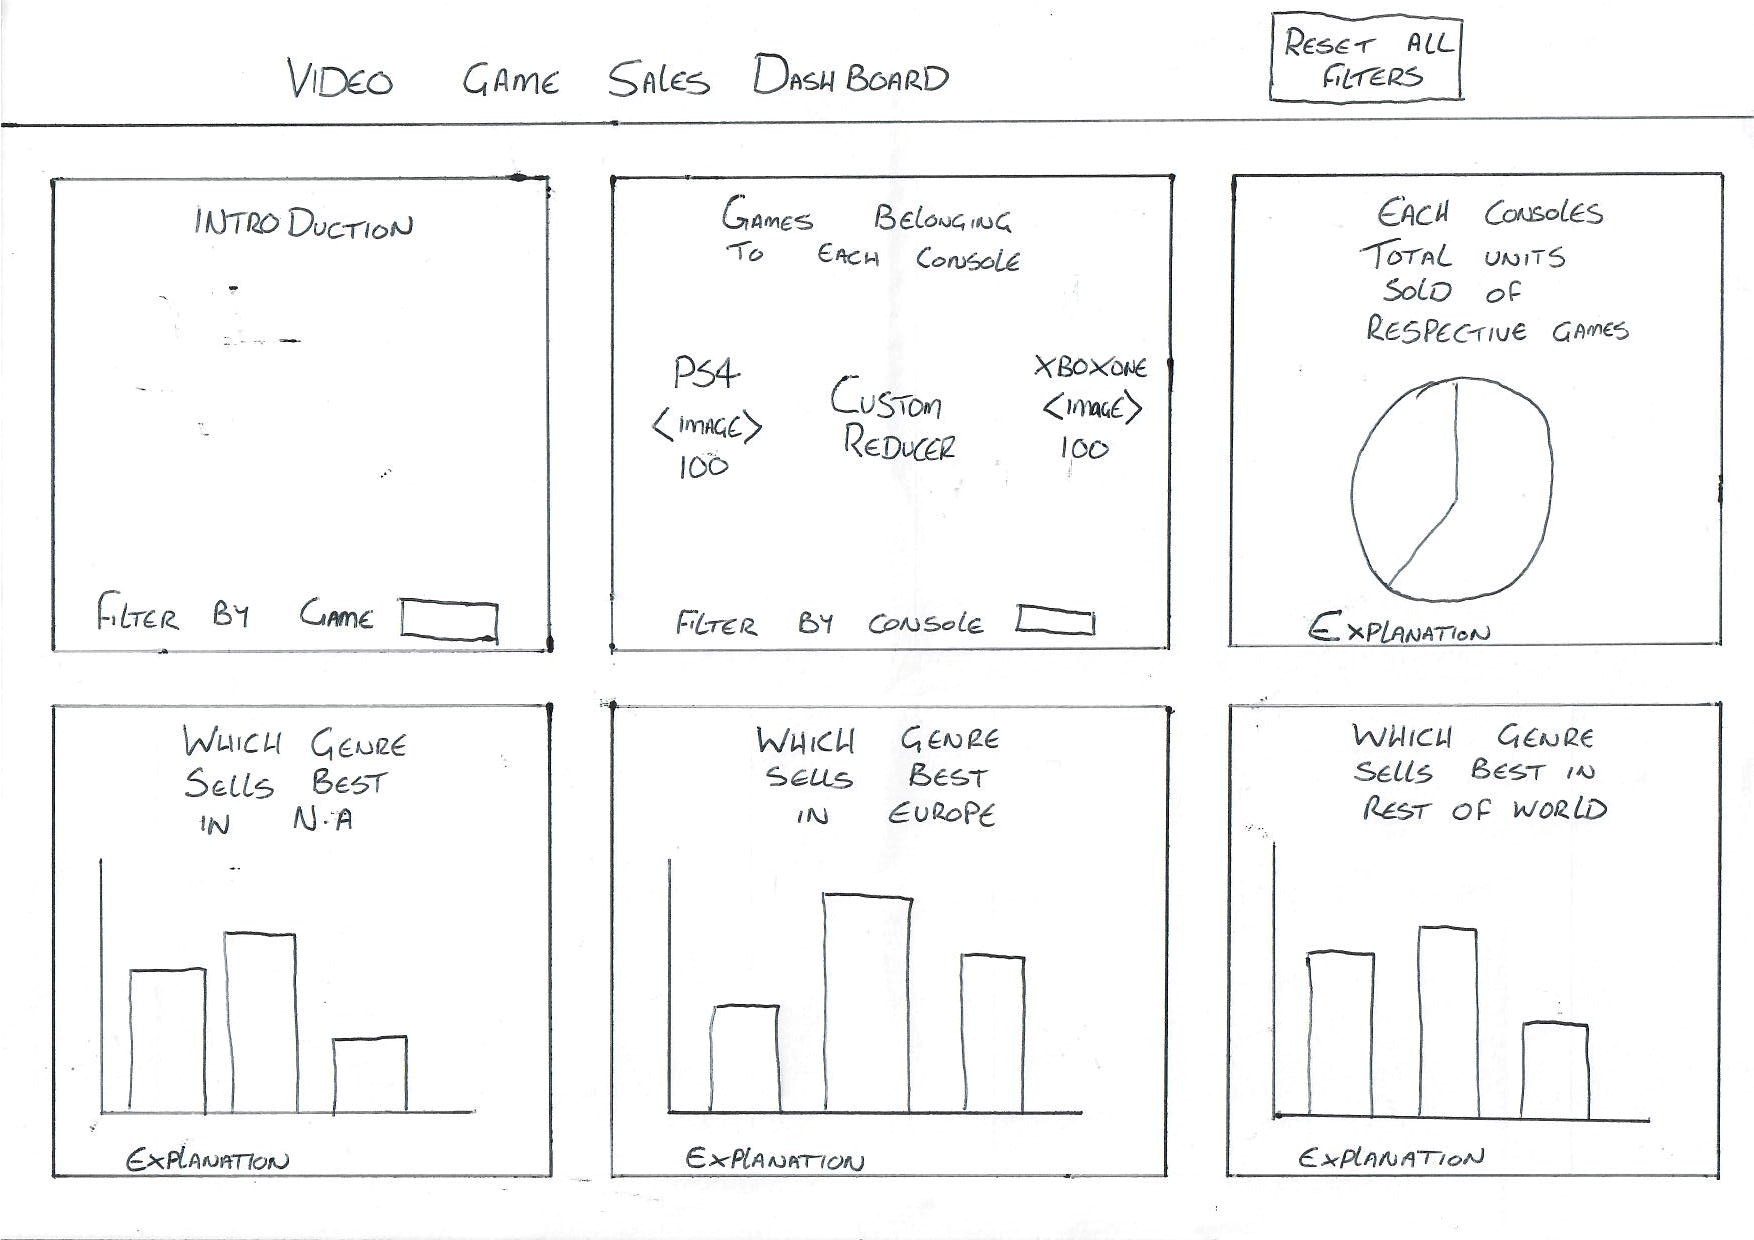 VIDEO GAME SALES DASHBOARD
RESET ALL
FILTERS
INTRODUCTION
FILTER BY GAME
GAMES BELONGING
TO EACH CONSOLE
PS4
<IMAGE>
100
CUSTOM
REDUCER
XBOXONE
<IMAGE>
100
FILTER BY CONSOLE
EACH CONSOLES
TOTAL UNITS
SOLD OF
RESPECTIVE GAMES
EXPLANATION
WHICH GENRE
SELLS BEST
IN N.A
EXPLANATION
WHICH GENRE
SELLS BEST
IN EUROPE
EXPLANATION
WHICH GENRE
SELLS BEST IN
REST OF WORLD
EXPLANATION